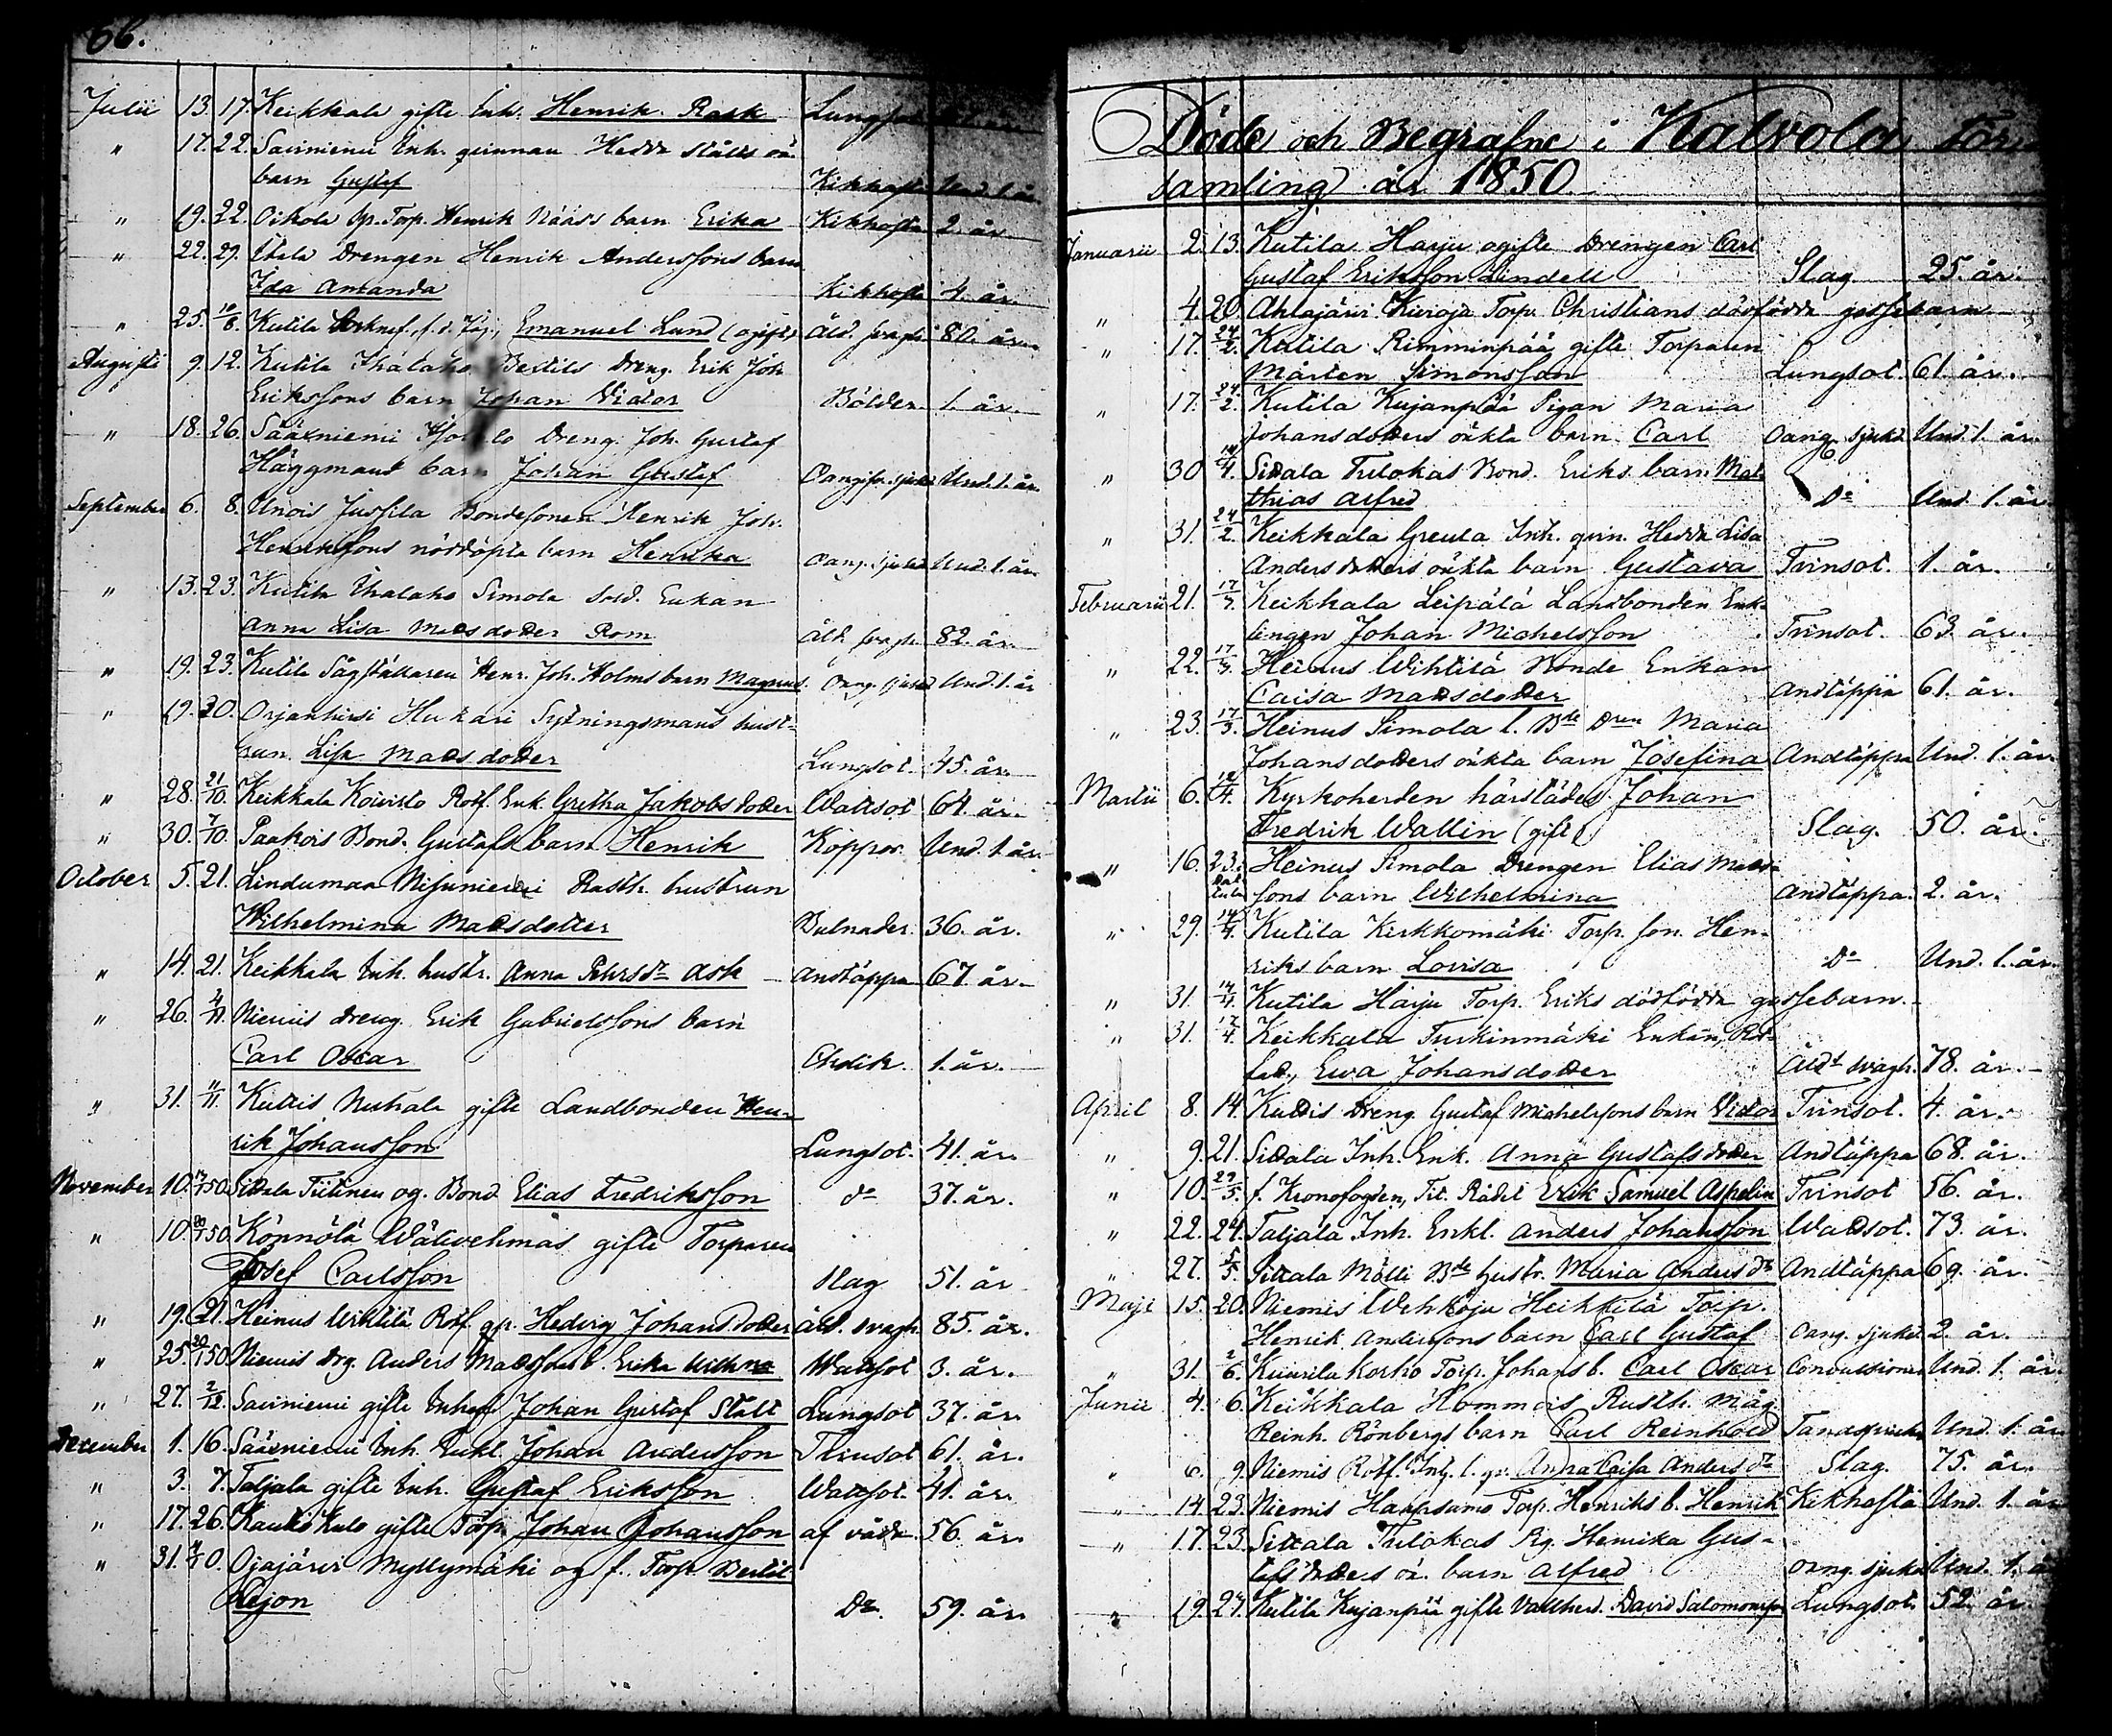 66.
Julii 13. 17. Keikkala gifte Inh. Henrik Rask
" 17. 22. Saviniemi Inh. qvinnan Hedda Ståles oä.
barn Gustaf Kikhosta Und. 1. år
" 19. 22. Oikola Torp. Henrik Nääss barn Erika Kikhosta 2. år
" 22. 29. Drengen Henrik Anderssons barn
Ida Amanda Kikhosta 4. år.
" 25. 10/8. Kutila Emanuel Lund (ogift) Åld. svagh. 80. år.
Augusti 9. 12. Kutila Bertils Dreng. Erik Joh.
Erikssons barn Johan Victor Bölder. 1. år.
" 18. 26. Sääxniemi Dreng. Joh. Gustaf
Häggmans barn Johan Gustaf Und. 1. år.
September 6. 8. Unois Jussila Bondesonen Henrik Joh.
Henrikssons nöddöpta barn Henrika Oang. sjukd Und. 1. år.
" 13. 23. Kutila Simola Sold. Enkan
Anna Lisa Matsdotter Rom Åld. svagh. 82. år.
" 19. 23. Kutila Sågställaren Henr. Joh. Holms barn Magnus. Oang. sjukd Und. 1. år
" 19. 20. Orjanhirsi Hukari Sytningsmans hust-
run Lisa Matsdotter Lungsot. 45. år.
" 28. 21/10. Keikkala Koivisto Rotf. Enk. Gretha Jakobsdotter Wattsot 64. år.
" 30. 7/10. Paakois Bond. Gustafs barn Henrik Koppor. Und. 1. år
October 5. 21. Lindumaa Nisuniemi Rusth. hustrun
Wilhelmina Matsdotter Bulnader. 36. år.
" 14. 21. Keikkala Inh. hustr. Anna Pehrsdr Ask Andtäppa 67. år.
" 26. 4/11. Niemis dreng. Erik Gabrielssons barn
Carl Oscar 1. år.
" 31. 11/11. Kuttis gifte Landbonden Hen-
rik Johansson Lungsot. 41. år.
November 10. Sittala Tiitinen og. Bond Elias Fredriksson do 37. år.
" 10. Könnölä Wälivehmas gifte Torparen
Josef Carlsson Slag 51. år
" 19. 21. Heinus Wihtilä Rotf. qv. Hedvig Johansdotter åld. svagh. 85. år.
" 25. Niemis drg. Anders Matssons b. Erika Wilhma Wattsot 3. år.
" 27. 2/12. Saviniemi gifte Inhys Johan Gustaf Stålt Lungsot 37. år.
December 1. 16. Sääxniemi Inh. Enkl. Johan Andersson Tvinsot 61. år.
" 3. 7. Taljala gifte Inh. Gustaf Eriksson Wattsot. 41. år.
" 17. 26. gifte Torp. Johan Johansson af våda. 56. år.
" 31. Ojajärvi Myllymäki og f. Torp. Bertil
Lejon Do. 59. år.
Döde och Begrafne i Kalvola För-
samling år 1850.
Januarii 2. 13. Kutila Harju ogifte Drengen Carl
Gustaf Eriksson Lindell Slag. 25. år.
" 4. 20. Ahlajärvi Kuroja Torp. Christians dödfödda gossebarn
" 17. 24/2. Kutila Rimminpää gifte Torparen
Mårten Simonsson Lungsot. 61. år.
" 17. 24/2. Kutila Kujanpää Pigan Maria
Johansdotters oäkta barn Carl Oang. sjukd Und. 1. år.
" 30 14/4. Sittala Tulokas Bond. Eriks barn Mat-
thias Alfred Do Und. 1. år
" 31. 24/2. Keikkala Greula Inh. qvin. Hedda Lisa
Andersdotters oäkta barn Gustava Tvinsot. 1. år.
Februarii 21. 17/3. Keikkala Leipälä Landbonden Enk-
lingen Johan Michelsson Tvinsot. 63. år.
" 22. 17/3. Heinus Wihtilä Bonde Enkan
Caisa Matsdotter Andtäppa 61. år.
" 23. 17/3. Heinus Simola l. Bde Dren Maria
Johansdotters oäkta barn Josefina Andtäppa Und. 1. år
Martii 6. 12/4. Kyrkoherden härstädes Johan
Fredrik Wallin (gift). Slag. 50. år.
" 16. 23. Heinus Simola Drengen Elias Mats-
sons barn Wilhelmina Andtäppa. 2. år.
" 29. 14/4. Kutila Kirkkomäki Torp. son Hen-
riks barn Lovisa Do Und. 1. år.
" 31. 14/4. Kutila Harju Torp. Eriks dödfödda gossebarn.
" 31. 17/4. Keikkala Turkinmäki Enkan, Rot-
fat., Ewa Johansdotter Åldt svagh. 78. år.
April 8. 14. Kuttis Dreng. Gustaf Michelssons barn Victor Tvinsot. 4. år.
" 9. 21. Sittala Inh. Enk. Anna Gustafsdotter Andtäppa 68. år.
" 10. 29/5. f. Kronofogden, Tit. Rådet Erik Samuel Aspelin Tvinsot 56. år.
" 22. 24. Taljala Inh. Enkl. Anders Johansson Wattsot. 73. år.
" 27. 5/5. Sittala Mölli Bde hustr. Maria Andersdr Andtäppa 69. år.
Maji 15. 20. Niemis Wehkoja Heikkilä Torp.
Henrik Anderssons barn Carl Gustaf Oang. sjukd. 2. år.
" 31. 2/6. Kuurila Korho Torp. Johans b. Carl Oscar Convulsioner Und. 1. år
Junii 4. 6. Keikkala Hommois Rusth. Måg
Reinh. Rönbergs barn Carl Reinhold Und. 1. år
" 6. 9. Niemis Rotf. Inh. l. qv. Anna Caisa Andersdr Slag. 75. år.
" 14 23. Niemis Haapsamo Torp. Henriks b. Henrik Kikhosta Und. 1. år
" 17. 23. Sittala Tulokas Pg. Henrika Gus-
tafsdotters oä. barn Alfred oang. sjukd Und. 1. år
" 19. 24. Kutila Kujanpää gifte Vallherd. David Salomonsson Lungsot. 52. år